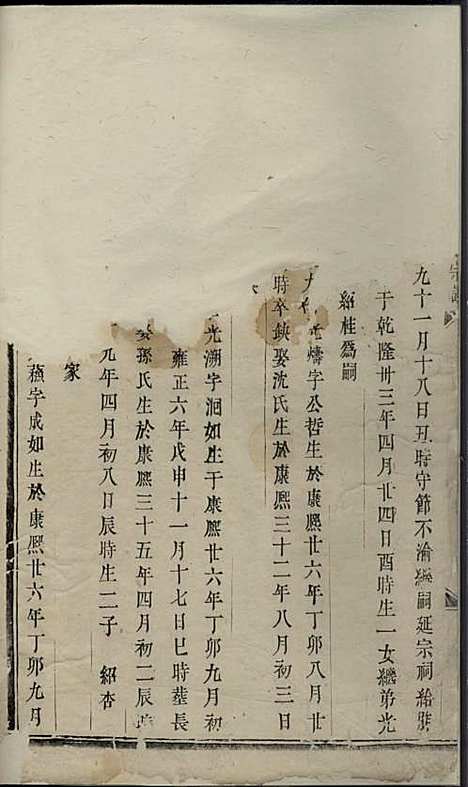 九十一月十八日丑時守節不渝繼嗣延宗祠給胙
于乾隆卅三年四月廿四日酉時生一女繼弟光
紹桂爲嗣
燽字公哲生於康熙廿六年丁卯八月廿
時卒缺娶沈氏生於康熙三十二年八月初三日
光溯字洄如生于康熙廿六年丁卯九月初
雍正六年戊申十一月十七日巳時塟長
娶孫氏生於康熙三十五年四月初二辰時
元年四月初八日辰時生二子 紹杏
家
字成如生於康熙廿六年丁卯九月